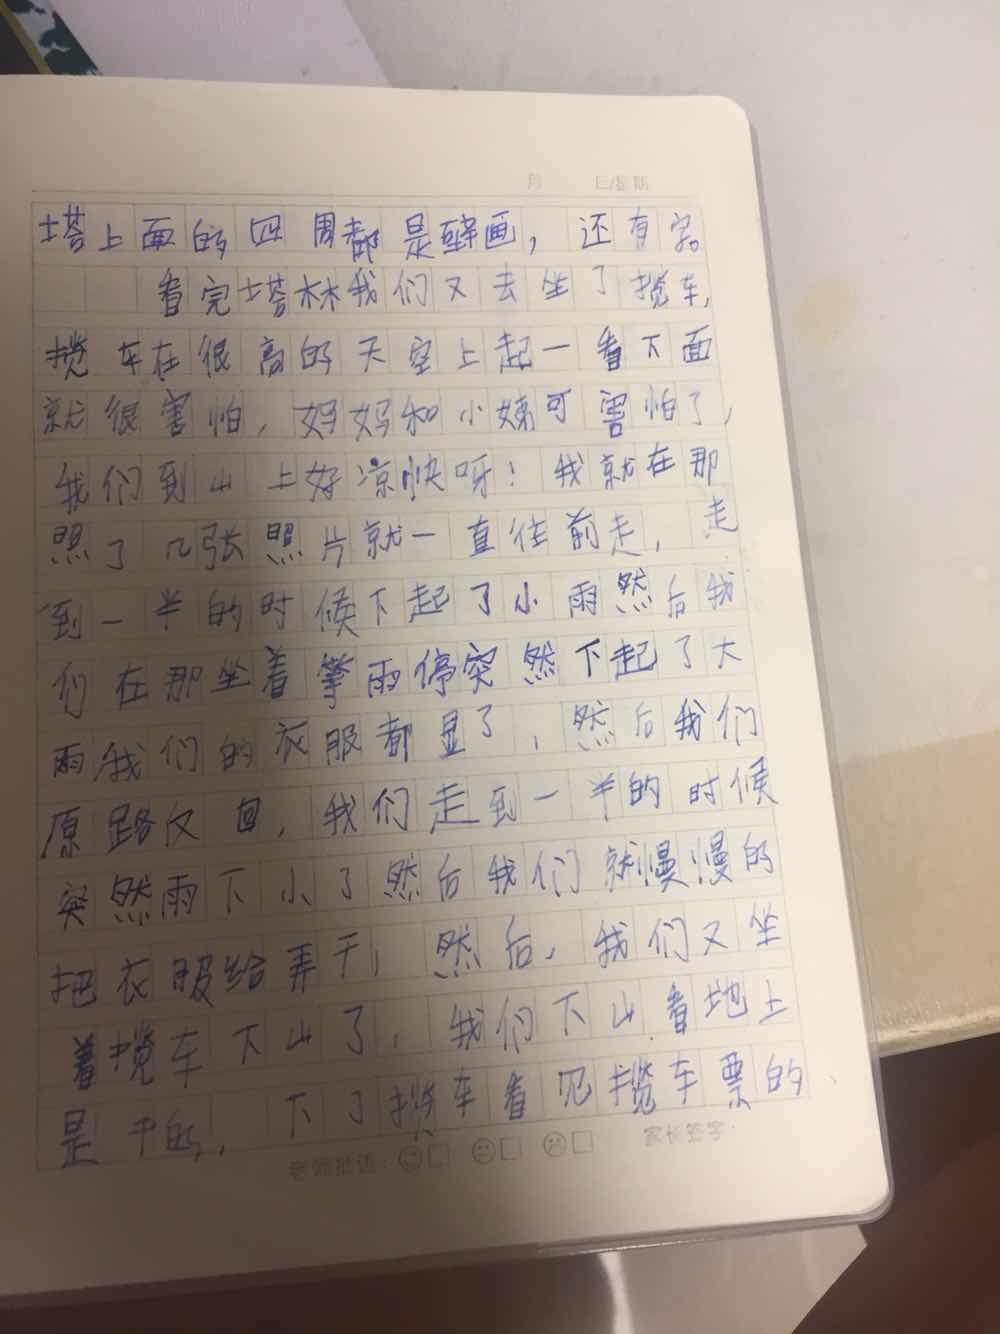 月 日/星期
塔上面的四周都是壁画，还有字。
看完塔林我们又去坐了揽车，
揽车在很高的天空上起一看下面
就很害怕，妈妈和小姨可害怕了，
我们到山上好凉快呀！我就在那
照了几张照片就一直往前走，走
到一半的时候下起了小雨然后我
们在那坐着等雨停突然下起了大
雨，我们的衣服都显了，然后我们
原路反回，我们走到一半的时候
突然雨下小了然后我们就慢慢的
把衣服给弄干，然后，我们又坐
着揽车下山了，我们下山看地上
是干的，下了揽车看见揽车票的
老师批语： 家长签字：